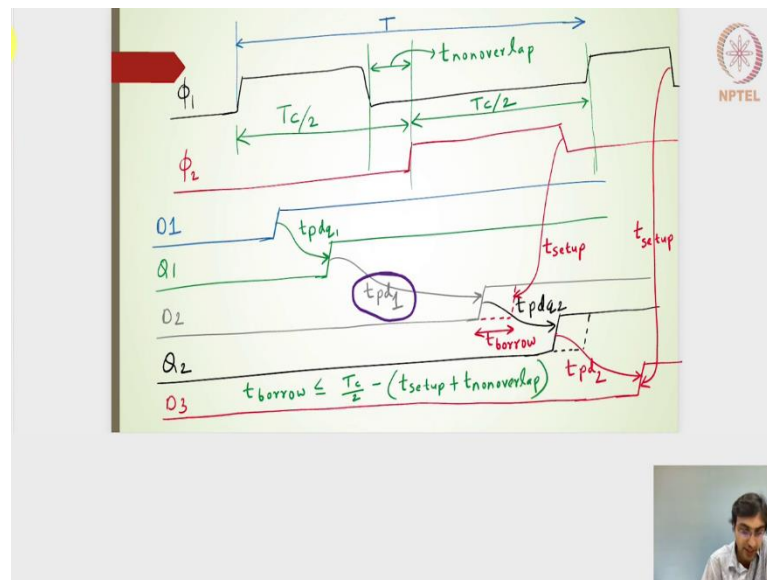 T
tnonoverlap
ϕ1
NPTEL
Tc/2
Tc/2
ϕ2
D1
tpdq1
tsetup
tsetup
Q1
tpd1
tpdq2
D2
tborrow
Q2
tpd2
tborrow ≤ Tc/2 - (tsetup + tnonoverlap)
D3